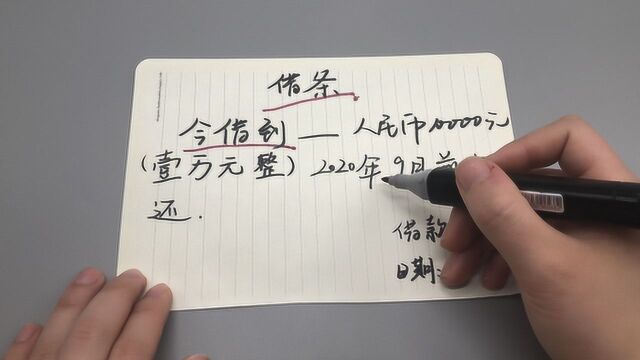 借条
今借到 — 人民币10000元
(壹万元整) 2020年9月前
还.
借款
日期: